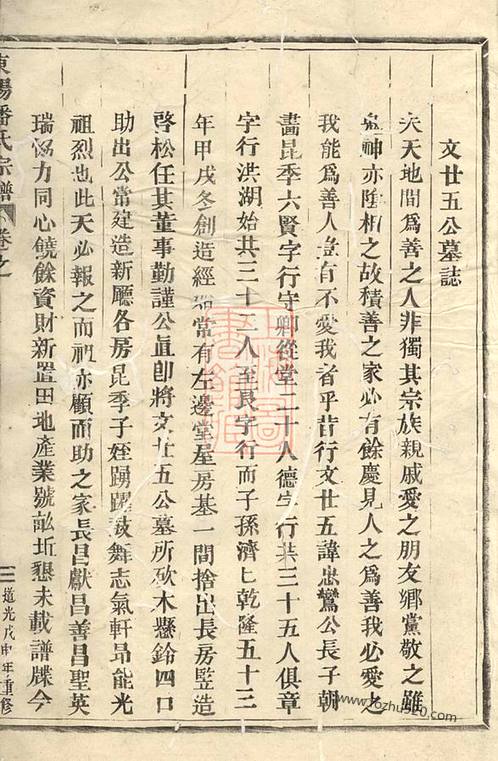 文廿五公墓誌
夫天地間爲善之人非獨其宗族親戚愛之朋友鄉黨敬之雖
鬼神亦陰相之故積善之家必有餘慶見人之爲善我必愛之
我能爲善人豈有不愛我者乎昔行文廿五諱忠鸞公長子朝
晝昆季六賢字行守卿從堂二十人德字行共三十五人俱章
字行洪湖始共三十三人至良字行而子孫濟匕乾隆五十三
年甲戌冬創造經 常有左邊堂屋房基一間捨出長房竪造
啓松任其董事勤謹公直卽將文廿五公墓所砍木懸鈴四口
助出公常建造新廳各房昆季子姪踴躍鼓舞志氣軒昂能光
祖烈也此天必報之而祖亦顧而助之家長昌獻昌善昌聖英
瑞協力同心饒餘資財新置田地產業號畝坵懇未載譜牒今
東陽潘氏宗譜
卷之
三
道光戊申年重修
www.ozhu520.com